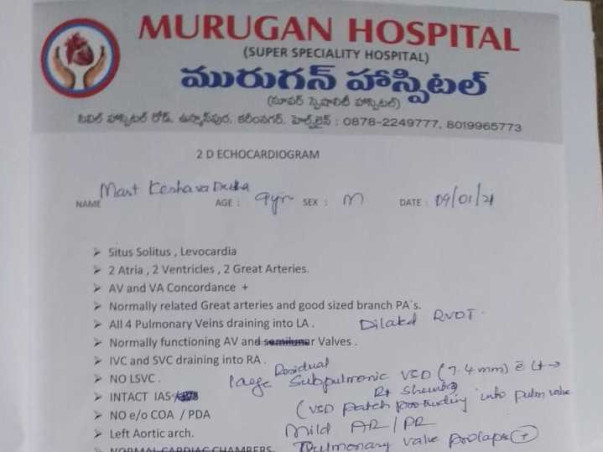 MURUGAN HOSPITAL
(SUPER SPECIALITY HOSPITAL)
మురుగన్ హాస్పిటల్
(సూపర్ స్పెషాలిటీ హాస్పిటల్)
సివిల్ హాస్పిటల్ రోడ్, ఉస్మాన్‌పుర, కరీంనగర్, హెల్ప్‌లైన్ : 0878-2249777, 8019965773
2 D ECHOCARDIOGRAM
NAME Mast Keshava AGE : 9yrs SEX : M DATE : 09/01/21
➢ Situs Solitus , Levocardia
➢ 2 Atria , 2 Ventricles , 2 Great Arteries.
➢ AV and VA Concordance +
➢ Normally related Great arteries and good sized branch PA`s.
➢ All 4 Pulmonary Veins draining into LA . Dilated RVOT.
➢ Normally functioning AV and semilunar Valves .
➢ IVC and SVC draining into RA .
Residual
➢ NO LSVC . large Subpulmonic VSD (7.4 mm) c̄ L→
➢ INTACT IAS Rt Shunting
➢ NO e/o COA / PDA (VSD patch protruding into pulm valve
➢ Left Aortic arch. Mild AR / PR
➢ NORMAL CARDIAC CHAMBERS Pulmonary valve prolapse +